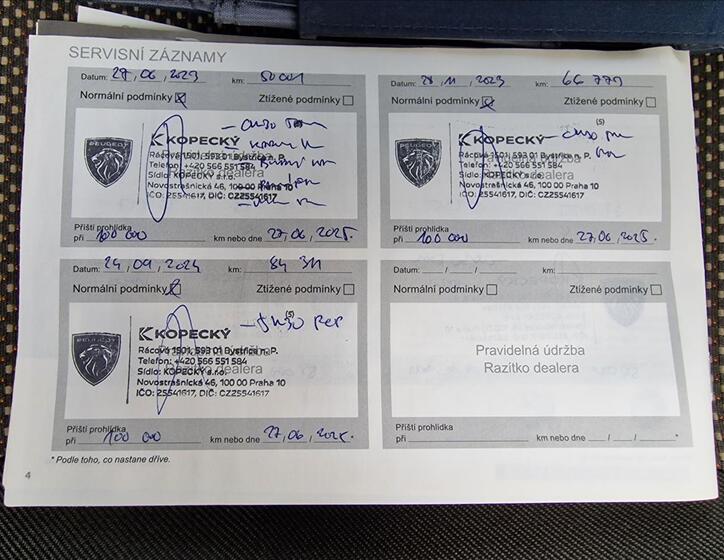 SERVISNÍ ZÁZNAMY
Datum: 27, 06, 2023 km: 50 001
Normální podmínky Ztížené podmínky
PEUGEOT
KOPECKÝ
Rácová 1501, 593 01 Bystřice n. P.
Telefon: +420 566 551 584
Razítko dealera
Sídlo: KOPECKÝ s.r.o.
Novostrašnická 46, 100 00 Praha 10
IČO: 25541617, DIČ: CZ25541617
Příští prohlídka
při 100 000 km nebo dne 27, 06, 2025.
Datum: 28, 11, 2023 km: 66 779
Normální podmínky Ztížené podmínky
PEUGEOT
(5)
KOPECKÝ
Rácová 1501, 593 01 Bystřice n. P.
Telefon: +420 566 551 584
Razítko dealera
Sídlo: KOPECKÝ s.r.o.
Novostrašnická 46, 100 00 Praha 10
IČO: 25541617, DIČ: CZ25541617
Příští prohlídka
při 100 000 km nebo dne 27, 06, 2025.
Datum: 24, 09, 2024 km: 84 311
Normální podmínky Ztížené podmínky
PEUGEOT
(5)
KOPECKÝ
Rácová 1501, 593 01 Bystřice n. P.
Telefon: +420 566 551 584
Razítko dealera
Sídlo: KOPECKÝ s.r.o.
Novostrašnická 46, 100 00 Praha 10
IČO: 25541617, DIČ: CZ25541617
Příští prohlídka
při 100 000 km nebo dne 27, 06, 2025.
Datum: / / km:
Normální podmínky Ztížené podmínky
Pravidelná údržba
Razítko dealera
Příští prohlídka
při km nebo dne / / *
* Podle toho, co nastane dříve.
4